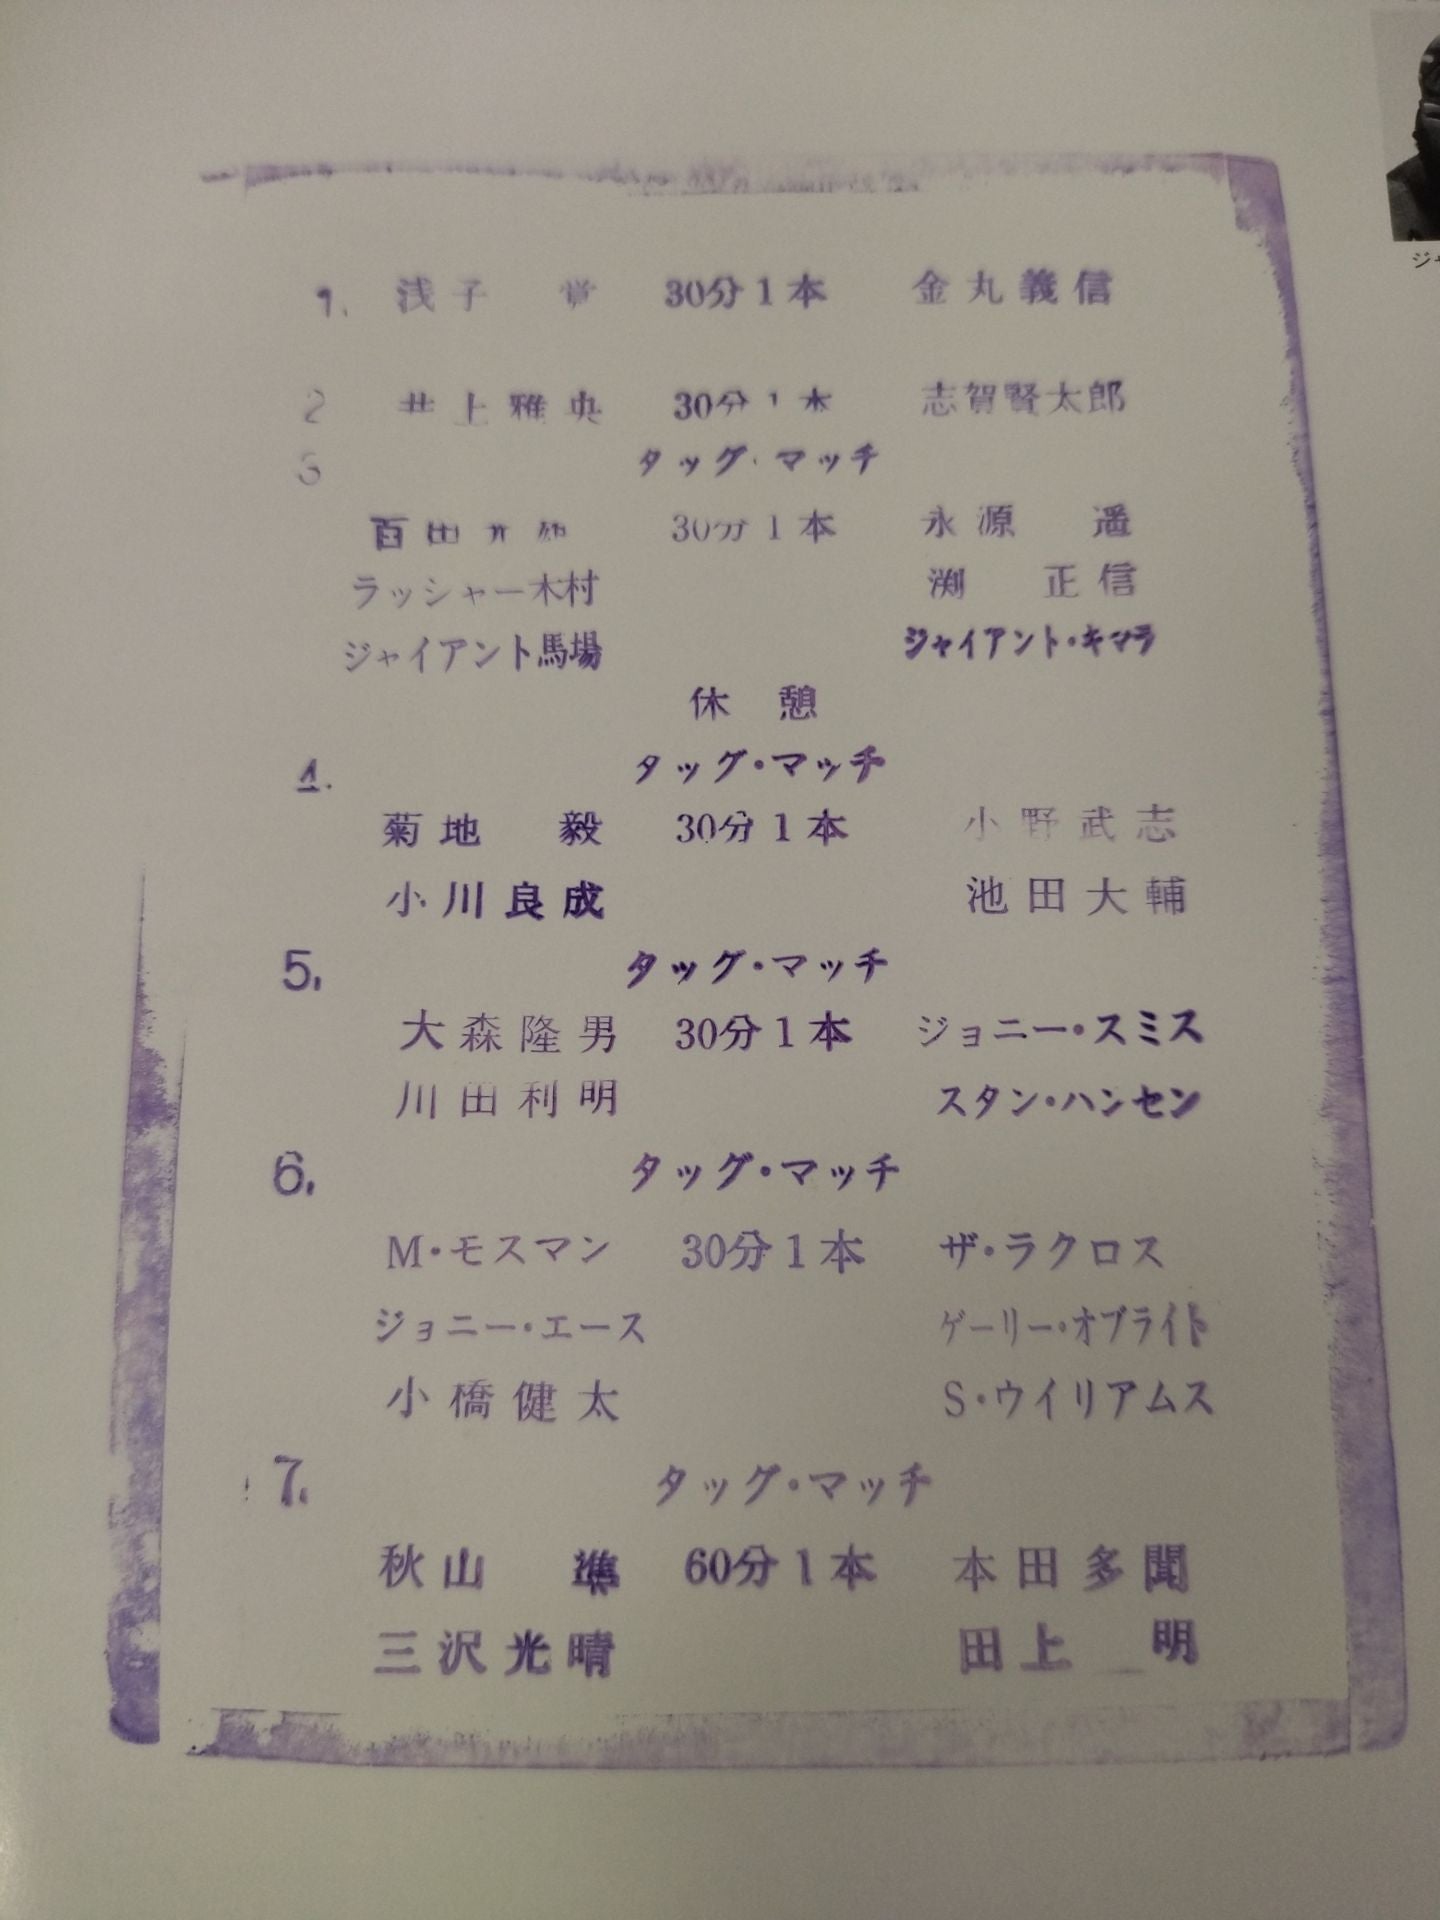 1. 浅子 覚 30分1本 金丸義信
2 井上雅央 30分1本 志賀賢太郎
3 タッグ・マッチ
百田光雄 30分1本 永源 遥
ラッシャー木村 渕 正信
ジャイアント馬場 ジャイアント・キマラ
休憩
4. タッグ・マッチ
菊地 毅 30分1本 小野武志
小川良成 池田大輔
5. タッグ・マッチ
大森隆男 30分1本 ジョニー・スミス
川田利明 スタン・ハンセン
6. タッグ・マッチ
M・モスマン 30分1本 ザ・ラクロス
ジョニー・エース ゲーリー・オブライト
小橋健太 S・ウイリアムス
7. タッグ・マッチ
秋山 準 60分1本 本田多聞
三沢光晴 田上 明